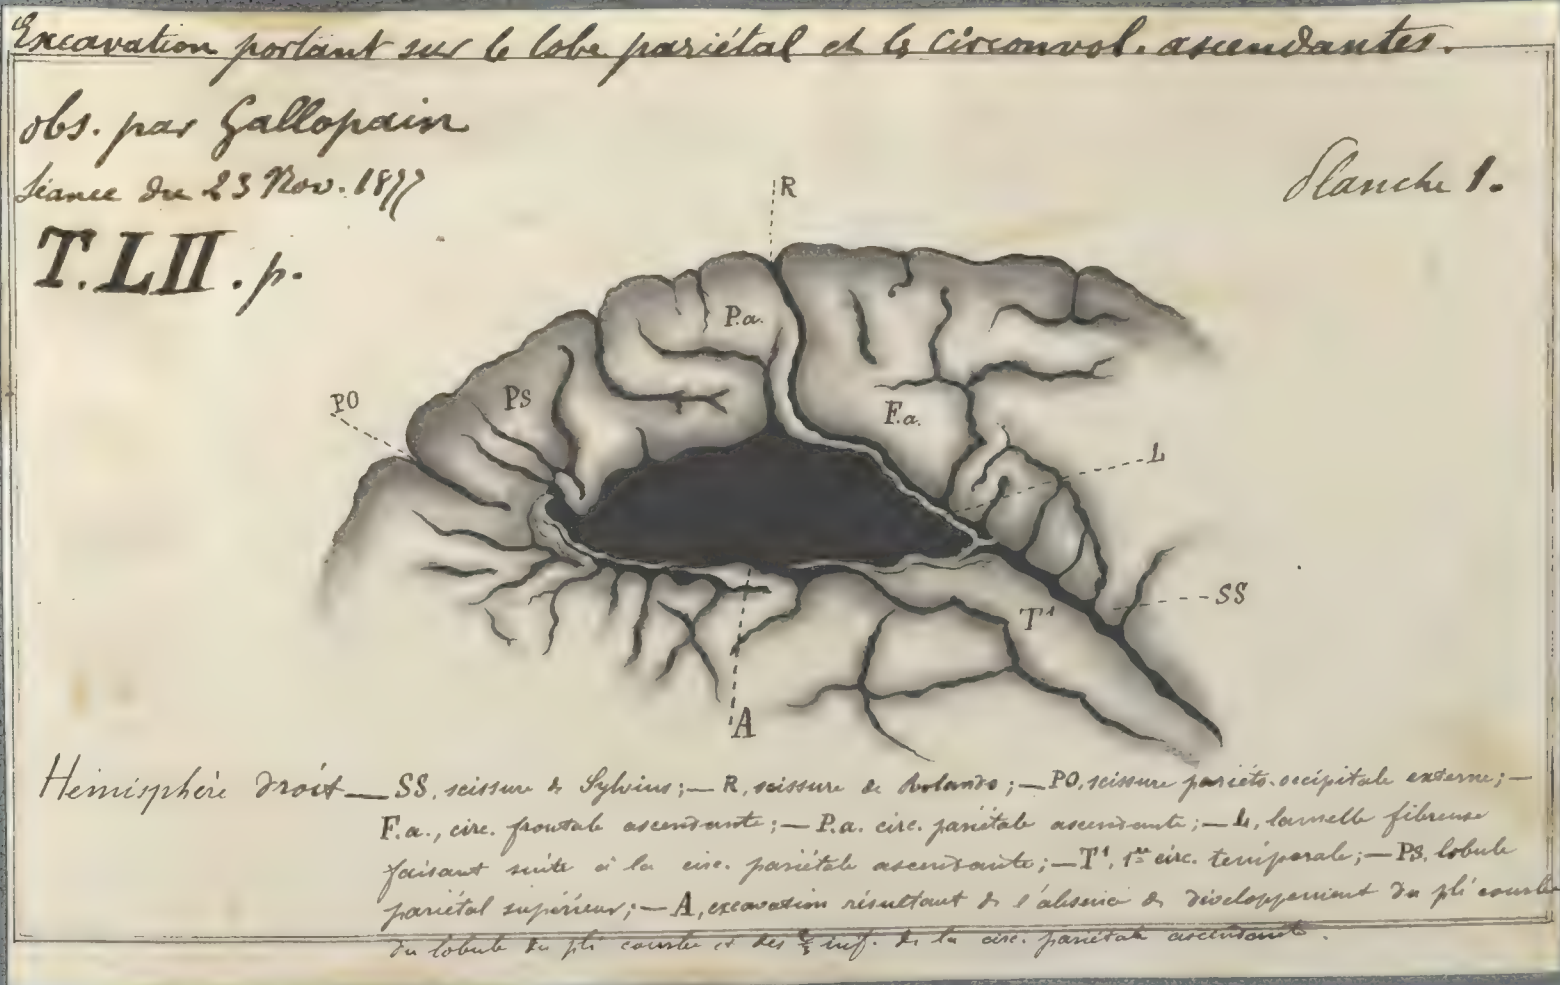 Excavation portant sur le lobe pariétal et les circonvol. ascendantes.
obs. par Gallopain
Séance du 23 Nov. 1877
Planche 1.
T. LII. p.
R
P.a.
PS
PO
F.a.
L
SS
T¹
A
Hémisphère droit — SS, scissure de Sylvius; — R, scissure de Rolando; — PO, scissure pariéto-occipitale externe; —
F.a., circ. frontale ascendante; — P.a. circ. pariétale ascendante; — L, lamelle fibreuse
faisant suite à la circ. pariétale ascendante; — T¹, 1re circ. temporale; — PS, lobule
pariétal supérieur; — A, excavation résultant de l'absence de développement du pli courbe
du lobule du pli courbe et des inf. de la circ. pariétale ascendante.